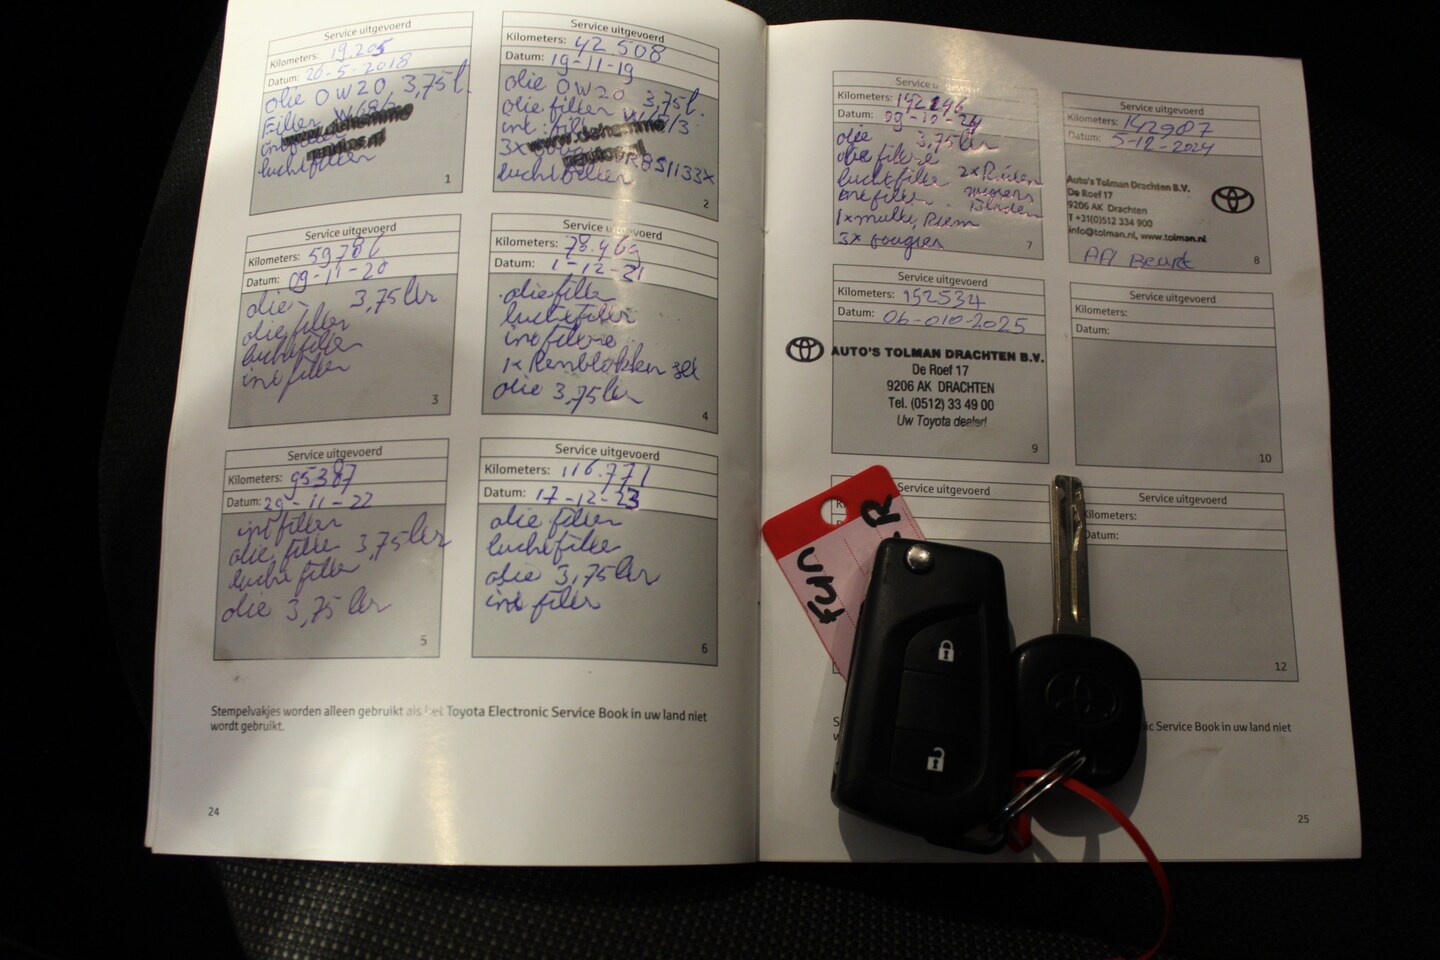 Service uitgevoerd
Kilometers: 19.205
Datum: 20-5-2018
olie 0W20, 3,75 l.
Filter
luchtfilter
1
Service uitgevoerd
Kilometers: 42.508
Datum: 19-11-19
olie 0W20 3,75 l.
olie filter
int. filter
3x
luchtfilter
2
Service uitgevoerd
Kilometers: 59786
Datum: 09-11-20
olie 3,75 ltr
olie filter
luchtfilter
int filter
3
Service uitgevoerd
Kilometers:
Datum: 1-12-21
olie filter
luchtfilter
int filter
1x Remblokken set
olie 3,75 ltr
4
Service uitgevoerd
Kilometers: 95387
Datum: 29-11-22
int filter
olie filter 3,75 ltr
lucht filter
olie 3,75 ltr
5
Service uitgevoerd
Kilometers: 116.771
Datum: 17-12-23
olie filter
luchtfilter
olie 3,75 ltr
int filter
6
Stempelvakjes worden alleen gebruikt als het Toyota Electronic Service Book in uw land niet
wordt gebruikt.
24
Service uitgevoerd
Kilometers:
Datum:
olie 3,75 ltr
olie filter
luchtfilter 2x
int filter
1x multi, Riem
3x bougies
7
Service uitgevoerd
Kilometers: 142907
Datum: 5-12-2024
Auto's Tolman Drachten B.V.
De Roef 17
9206 AK Drachten
T +31(0)512 334 900
info@tolman.nl, www.tolman.nl
APK Beurt
8
Service uitgevoerd
Kilometers: 152534
Datum: 06-010-2025
AUTO'S TOLMAN DRACHTEN B.V.
De Roef 17
9206 AK DRACHTEN
Tel. (0512) 33 49 00
Uw Toyota dealer!
9
Service uitgevoerd
Kilometers:
Datum:
10
Service uitgevoerd
Service uitgevoerd
Kilometers:
Datum:
12
Service Book in uw land niet
25